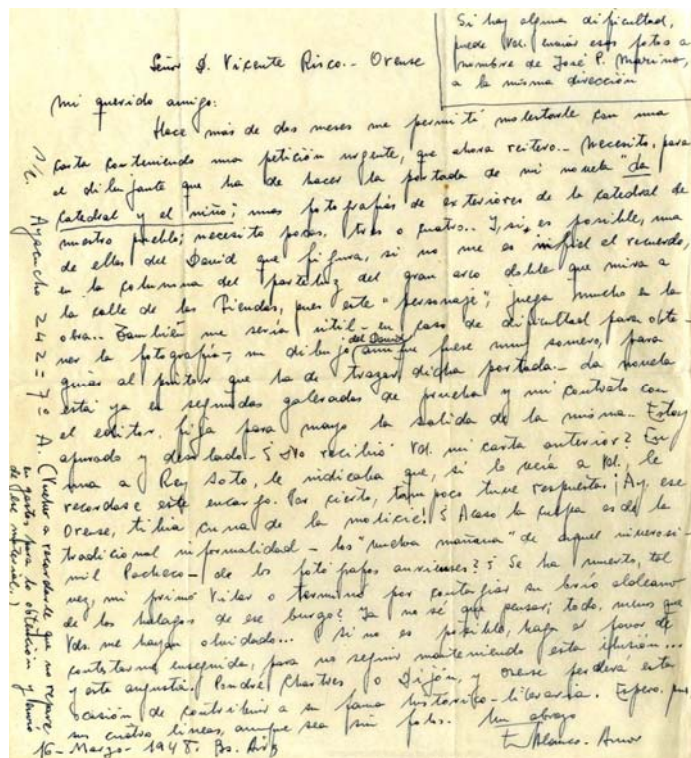 Si hay alguna dificultad,
puede Vd. enviar esas fotos a
nombre de José P. Mariño,
a la misma dirección
Señor D. Vicente Risco.- Orense
Mi querido amigo:
Hace más de dos meses me permití molestarle con una
carta conteniendo una petición urgente, que ahora reitero.- Necesito, para
el dibujante que ha de hacer la portada de mi novela "La
catedral y el niño", unas fotografías de exteriores de la catedral de
nuestro pueblo; necesito pocas, tres o cuatro.. Y, si es posible, una
de ellas del David que figura, si no me es infiel el recuerdo,
en la columna del parteluz del gran arco doble que mira a
la calle de las Tiendas, pues este "personaje", juega mucho en la
obra.. También me sería útil - en caso de dificultad para obte-
ner la fotografía, un dibujo del David aunque fuese muy somero, para
guiar al pintor que ha de trazar dicha portada.- La novela
está ya en segundas galeradas de prueba y mi contrato con
el editor fija para mayo la salida de la misma.. Estoy
apurado y desolado.- ¿No recibió Vd. mi carta anterior? En
una a Rey Soto, le indicaba que, si lo veía a Vd., le
recordase este encargo. Por cierto, tampoco tuve respuesta ¡Ay, ese
Orense, tibia cuna de la molicie! ¿Acaso la culpa es de la
tradicional informalidad - los "vuelva mañana" de aquel inverosí-
mil Pacheco - de los fotógrafos aurienses? ¿Se ha muerto, tal
vez, mi primo Vilar o terminó por contagiar su brío aldeano
de los halagos de ese burgo? Ya no sé qué pensar; todo, menos que
Vds. me hayan olvidado... Si no es posible, haga el favor de
contestarme enseguida, para no seguir manteniendo esta ilusión...
y esta angustia. Pondré Chartres o Dijón, y Orense perderá esta
ocasión de contribuir a su fama histórico-literaria. Espero, pues
sus cuatro líneas, aunque sea sin fotos. Un abrazo
E. Blanco-Amor
16-Marzo-1948. Bs. Airs
s/c. Ayacucho 242 = 7º A. (Vuelvo a recordarle que no repare
en gastos para la obtención y envío
de ese material.)